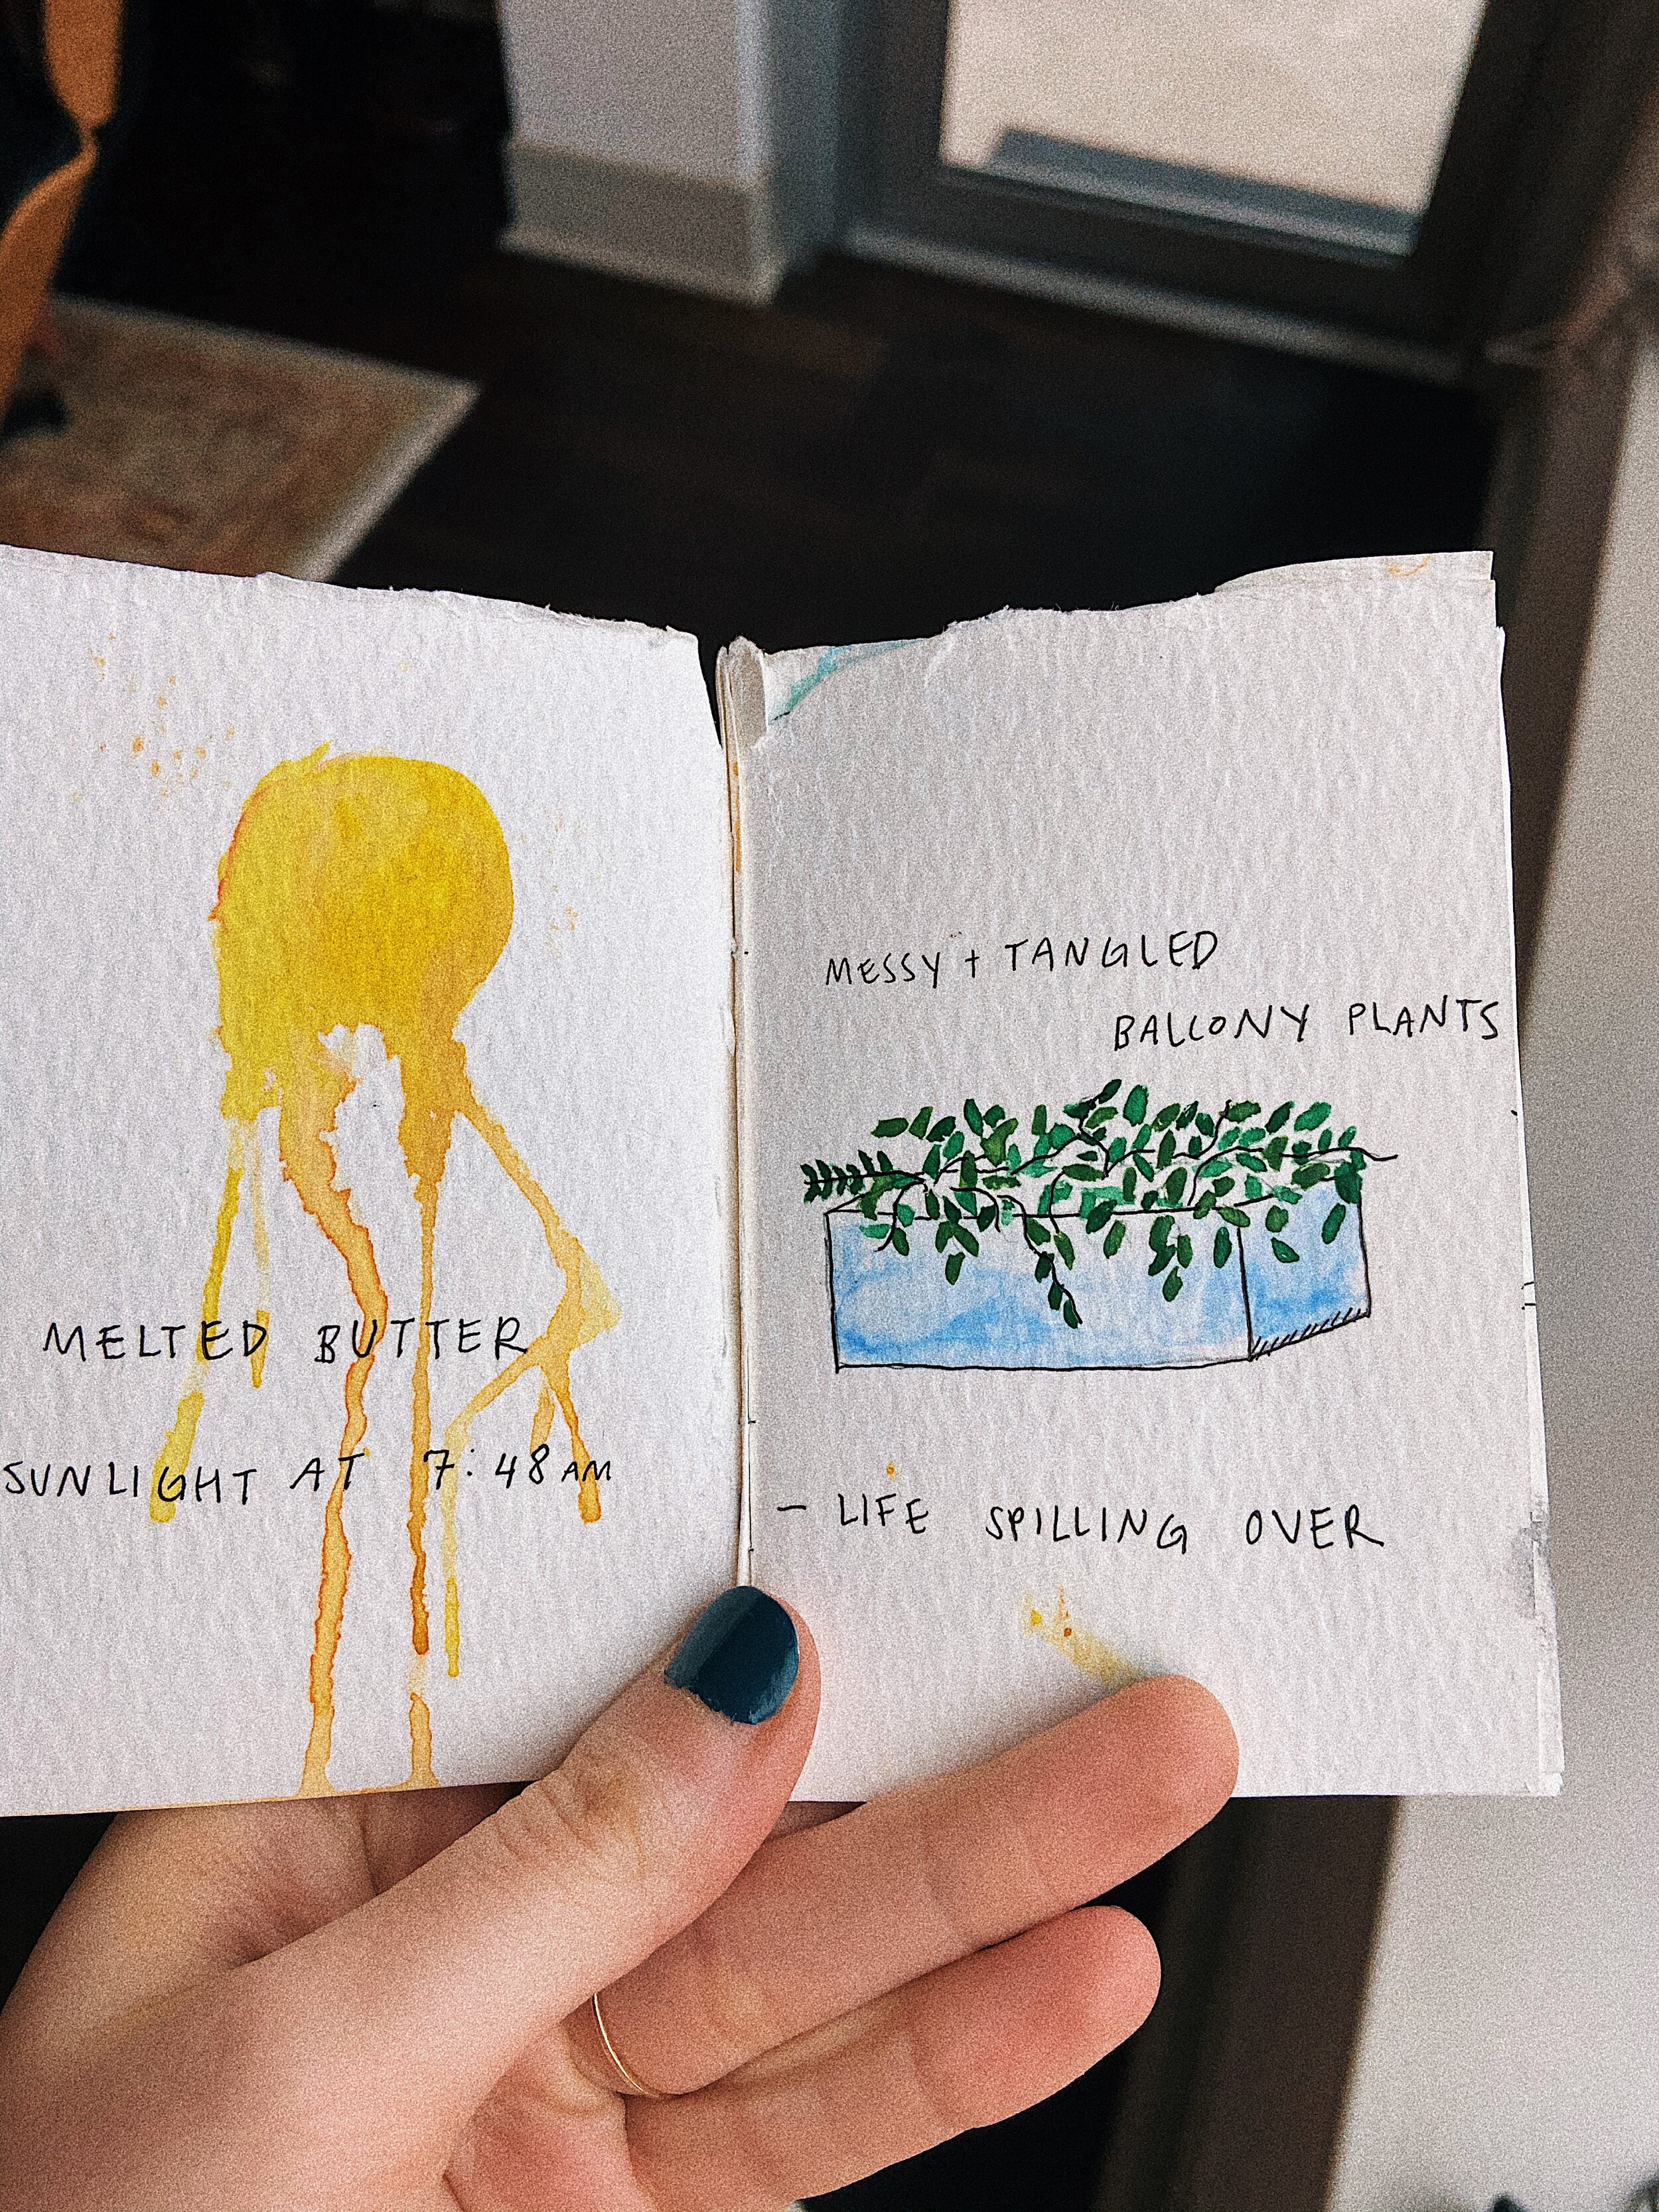 MELTED BUTTER
SUNLIGHT AT 7:48 AM
MESSY + TANGLED
BALCONY PLANTS
- LIFE SPILLING OVER